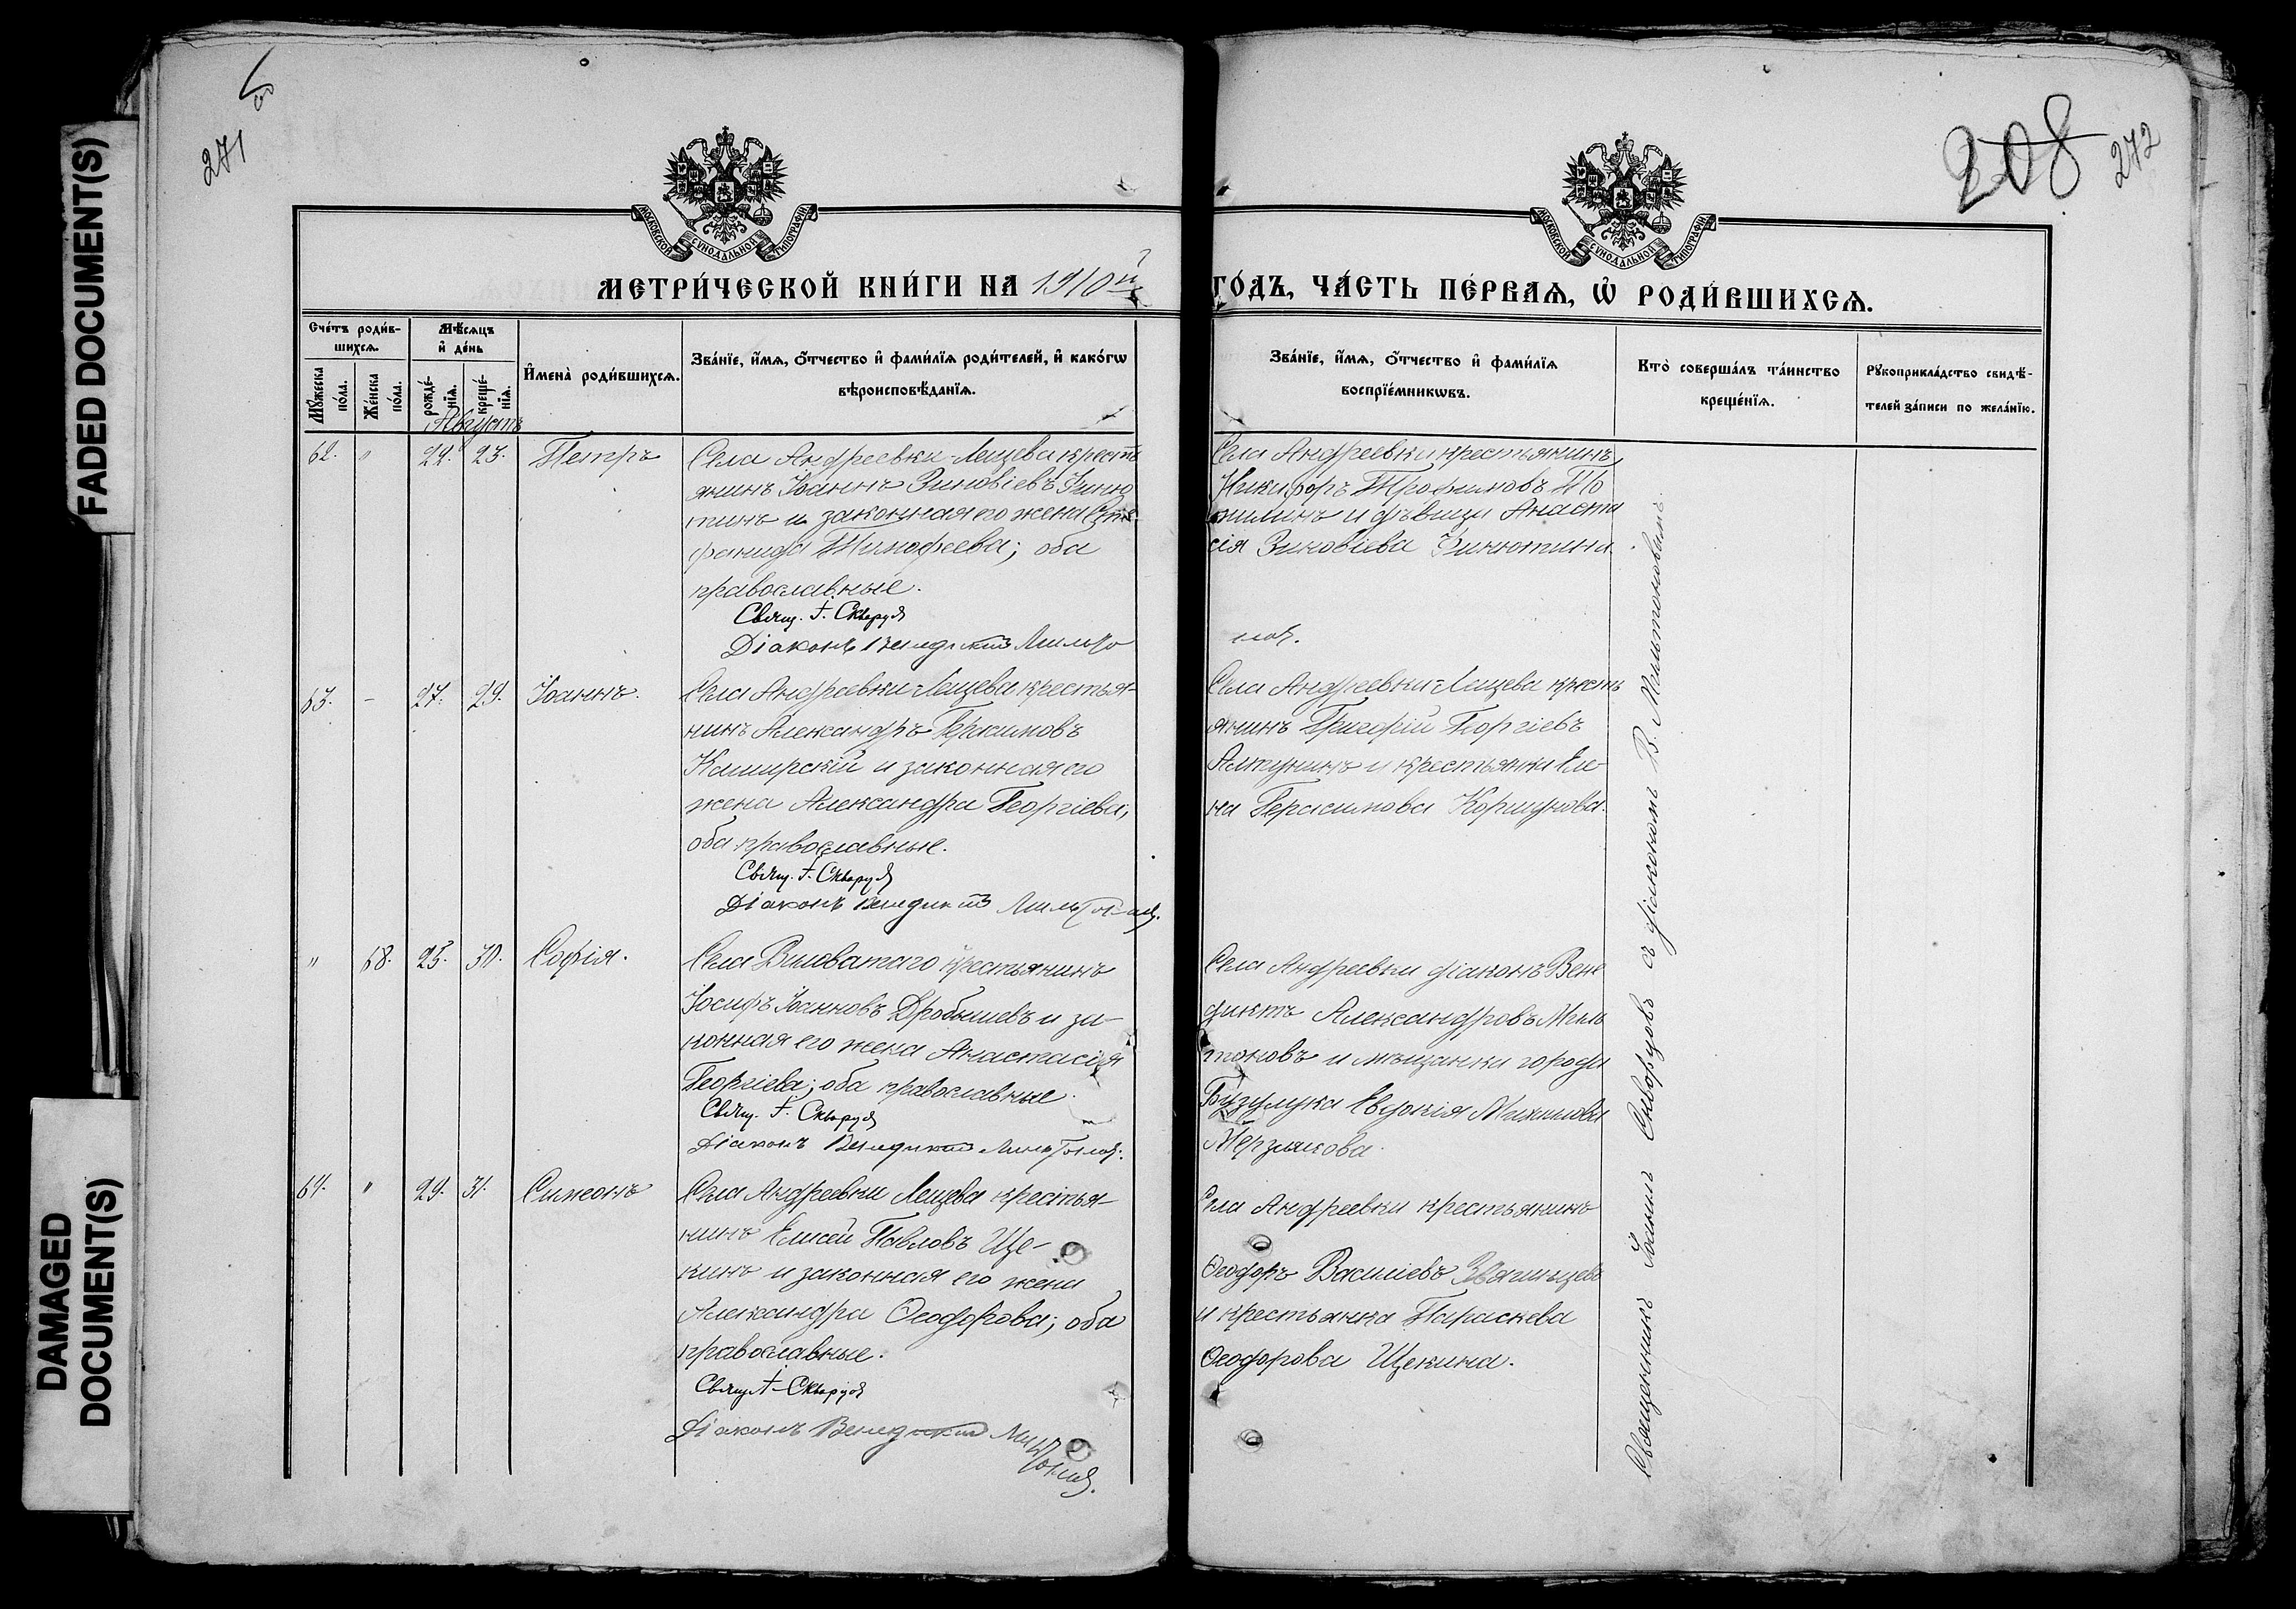 FADED DOCUMENT(S)
DAMAGED
DOCUMENT(S)
271
208
272
МОСКОВСКОЙ СУНОДАЛЬНОЙ ТИПОГРАФІИ
МОСКОВСКОЙ СУНОДАЛЬНОЙ ТИПОГРАФІИ
МЕТРИ́ЧЕСКОЙ КНИ́ГИ НА 1910й
ГО́ДЪ, ЧА́СТЬ ПЕ́РВАѦ, Ѡ҆ РОДИ́ВШИХСѦ.
Сче́тъ роди́в-
шихсѧ.
Мꙋ́жеска
по́ла.
Же́нска
по́ла.
Мѣ́сѧцъ
и҆ де́нь
рожде́-
нїѧ.
креще́-
нїѧ.
И҆мена̀ роди́вшихсѧ.
Зва́нїе, и҆́мѧ, ѻ҆́тчество и҆ фами́лїѧ роди́телей, и҆ како́гѡ
вѣроисповѣ́данїѧ.
Зва́нїе, и҆́мѧ, ѻ҆́тчество и҆ фами́лїѧ
воспрїе́мникѡвъ.
Кто̀ соверша́лъ та́инство
креще́нїѧ.
Рꙋкоприкла́дство свидѣ́-
телей за́писи по жела́нїю.
Августъ
62. " 22. 23. Петръ
Села Андреевки-Лещева крестъ
янинъ Іоаннъ Зиновіевъ Финю
тинъ и законная его жена Сте
фанида Тимофеева; оба
православные.
Свящ. І. Скворцов
Діаконъ Венедиктъ Мильто
нов.
Села Андреевки крестьянинъ
Никифоръ Трофимовъ То
милинъ и дѣвица Анаста
сія Зиновіева Финютина
63. - 27. 29. Іоаннъ.
Села Андреевки-Лещева крестья-
нинъ Александръ Герасимовъ
Каширскій и законная его
жена Александра Георгіева;
оба православные.
Свящ. І. Скворцов
Діаконъ Венедиктъ Мильтонов.
Села Андреевки-Лещева кресть
янинъ Григорій Георгіевъ
Алтунинъ и крестьянка Еле-
на Герасимова Коршунова.
" 68. 25. 30. Софія.
Села Виловатаго крестьянинъ
Іосифъ Іоанновъ Дробышевъ и за-
конная его жена Анастасія
Георгіева; оба православные.
Свящ. І. Скворцов
Діаконъ Венедиктъ Мильтонов.
Села Андреевки діаконъ Вене
диктъ Александровъ Миль
тоновъ и мѣщанка города
Бузулука Евдокія Михайлова
Мерзлякова.
64. " 29. 31. Симеонъ
Села Андреевки Лещева крестья-
нинъ Елисей Павловъ Ще-
кинъ и законная его жена
Александра Ѳеодорова; оба
православные.
Свящ. І. Скворцов
Діаконъ Венедиктъ Мильтонов.
Села Андреевки крестьянинъ
Ѳеодоръ Василіевъ Звягинцевъ
и крестьянка Параскева
Ѳеодорова Щекина.
Священникъ Іоаннъ Скворцовъ съ діакономъ В. Мильтоновымъ